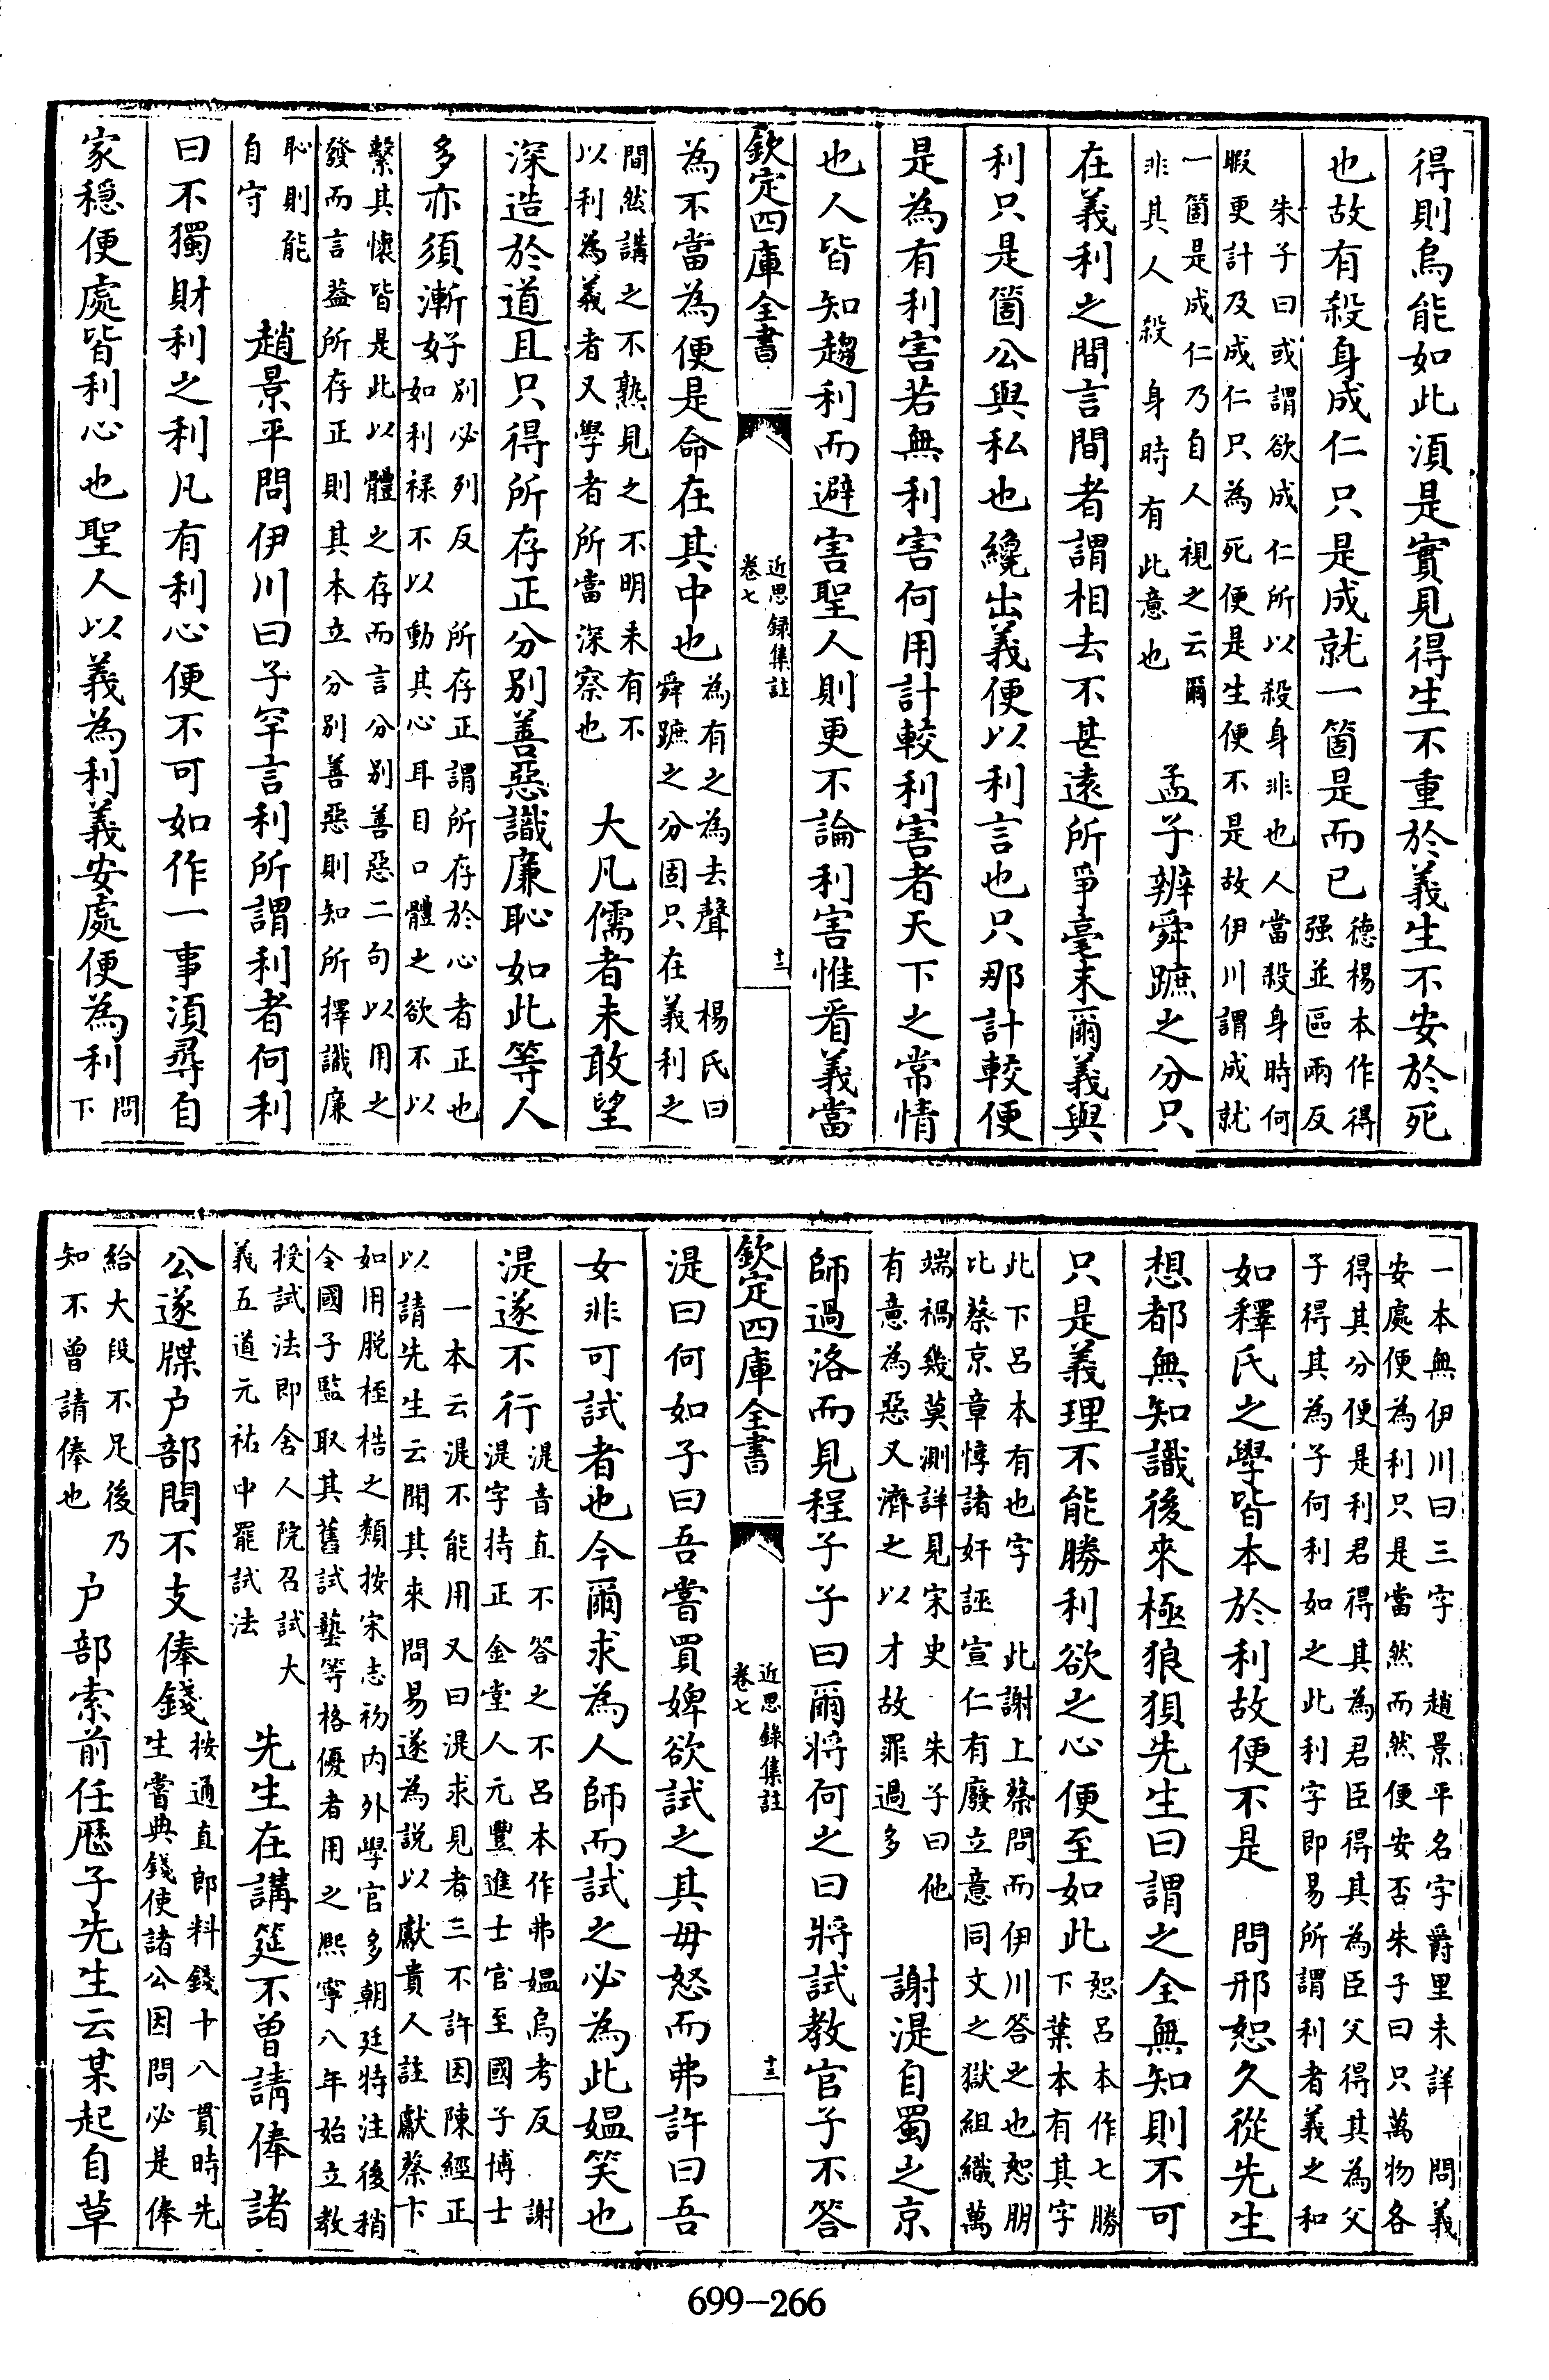 得則烏能如此湏是實見得生不重於義生不安於死
也故有殺身成仁只是成就一箇是而已
德楊本作得
强並區兩反
朱子曰或謂欲成仁所以殺身非也人當殺身時何
暇更計及成仁只為死便是生便不是故伊川謂成就
一箇是成仁乃自人視之云爾
非其人殺身時有此意也
孟子辨舜蹠之分只
在義利之間言間者謂相去不甚遠所爭毫末爾義與
利只是箇公與私也纔出義便以利言也只那計較便
是為有利害若無利害何用計較利害者天下之常情
也人皆知趨利而避害聖人則更不論利害惟看義當
欽定四庫全書
近思録集註
卷七
十二
為不當為便是命在其中也
為有之為去聲 楊氏曰
舜蹠之分固只在義利之
間然講之不熟見之不明未有不
以利為義者又學者所當深察也
大凡儒者未敢望
深造於道且只得所存正分别善惡識廉恥如此等人
多亦須漸好
别必列反 所存正謂所存於心者正也
如利禄不以動其心耳目口體之欲不以
繫其懷皆是此以體之存而言分别善惡二句以用之
發而言益所存正則其本立分别善惡則知所擇識廉
恥則能
自守
趙景平問伊川曰子罕言利所謂利者何利
曰不獨財利之利凡有利心便不可如作一事湏尋自
家穏便處皆利心也聖人以義為利義安處便為利
問
下
一本無伊川曰三字 趙景平名字爵里未詳 問義
安處便為利只是當然而然便安否朱子曰只萬物各
得其分便是利君得其為君臣得其為臣父得其為父
子得其為子何利如之此利字即易所謂利者義之和
如釋氏之學皆本於利故便不是 問邢恕久從先生
想都無知識後來極狼狽先生曰謂之全無知則不可
只是義理不能勝利欲之心便至如此
恕吕本作七勝
下葉本有其字
此下呂本有也字 此謝上蔡問而伊川答之也恕朋
比蔡京章惇諸奸誣宣仁有廢立意同文之獄組織萬
端禍幾莫測詳見宋史 朱子曰他
有意為惡又濟之以才故罪過多
謝湜自蜀之京
師過洛而見程子子曰爾將何之曰將試教官子不答
欽定四庫全書
近思録集註
卷七
十三
湜曰何如子曰吾嘗買婢欲試之其母怒而弗許曰吾
女非可試者也今爾求為人師而試之必為此媼笑也
湜遂不行
湜音直不答之不呂本作弗媼烏考反 謝
湜字持正金堂人元豐進士官至國子博士
一本云湜不能用又曰湜求見者三不許因陳經正
以請先生云聞其來問易遂為説以獻貴人註獻蔡卞
如用脱桎梏之類按宋志初内外學官多朝廷特注後稍
令國子監取其舊試藝等格優者用之熙寧八年始立教
授試法即舍人院召試大
義五道元祐中罷試法
先生在講筵不曽請俸諸
公遂牒户部問不支俸錢
按通直郎料錢十八貫時先
生嘗典錢使諸公因問必是俸
給大段不足後乃
知不曾請俸也
户部索前任厯子先生云某起自草
699-266